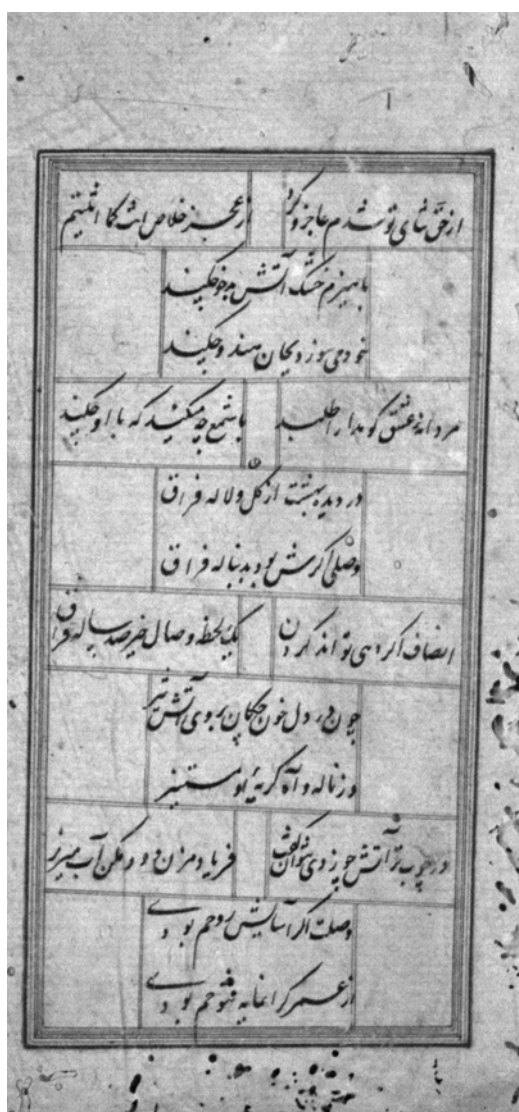 از حق ثنای تو شدم عاجز و کرد از عجز خلاص
با هیزم خشک آتش چو کند
خود می سوزد بجان هند و چکند
مردانهٔ عشق کو مدارا طلبد با شمع چه میکند که با او چکند
در دیده بهشت از گل و لاله فراق
وصلی اگرش بود بدنباله فراق
انصاف اگر دهی تواند کردن یک لحظه وصال خیر صد ساله فراق
چون در دل خون چکان روی آتش تیز
وز ناله و آه کریهٔ او مستیز
در چوب تر آتش چو زدی فریاد مزن دود مکن آب مریز
وصلت اگر آسایش روحم بودی
از عمر گرانمایه فتوحم بودی